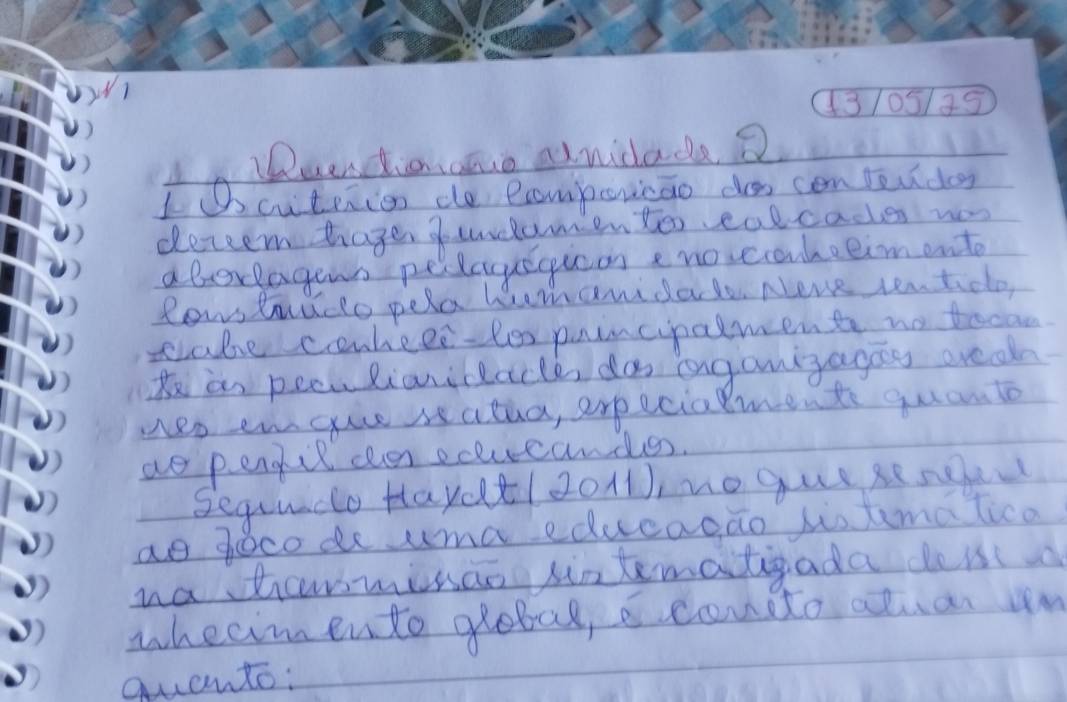 N1
13/05/25
Questionário unidade 2
1 Os critérios de composição dos conteúdos
devem trazer fundamentos calcados nas
abordagens pedagógicas e no conhecimento
construído pela humanidade. Nesse sentido,
cabe conhecê-los principalmente no tocan-
te às peculiaridades das organizações escola-
res em que se atua, especialmente quanto
ao perfil dos educandos.
Segundo Haydt (2011), no que se refere
ao foco de uma educação sistemática
na transmissão sistematizada desse co
nhecimento global, é correto atuar en
quanto: